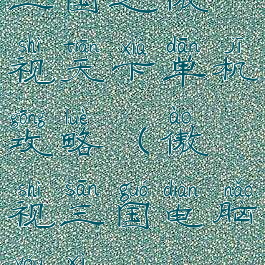 三国之傲
shì tiān xià dān jī
视天下单机
gōng lüè ào
攻略（傲
shì sān guó diàn nǎo
视三国电脑
yóu xì